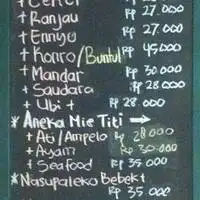 + Ceker Rp 27.000
+ Ranjau Rp 27.000
+ Enniyu Rp 27.000
+ Konro/Buntut Rp 45000
+ Mandar Rp 30.000
+ Saudara Rp 28.000
+ Ubi + Rp 28.000
* Aneka Mie Titi →
+ Ati/Ampelo Rp 28000
+ Ayam Rp 30.000
+ Seafood Rp 35 000
* Nasupaleko Bebek +
Rp 35.000